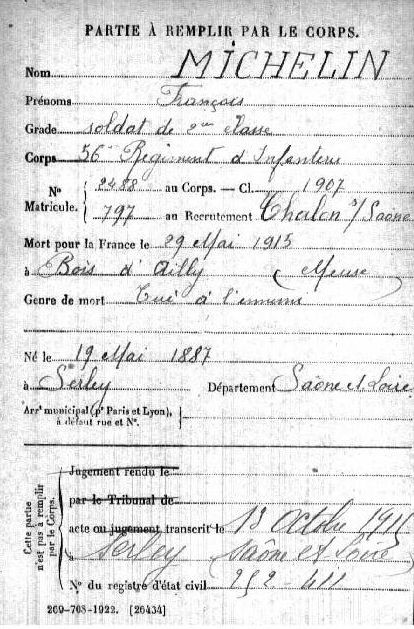 PARTIE À REMPLIR PAR LE CORPS.
Nom MICHELIN
Prénoms François
Grade soldat de 2me classe
Corps 56e Régiment d'Infanterie
N° Matricule. { 2488 au Corps. — Cl. 1907
797 au Recrutement Chalon s/ Saône
Mort pour la France le 29 Mai 1915
à Bois d'Ailly (Meuse)
Genre de mort Tué à l'ennemi
Né le 19 Mai 1887
à Serley Département Saône et Loire
Arrt municipal (pr Paris et Lyon), à défaut rue et N°.
Cette partie n'est pas à remplir par le Corps.
Jugement rendu le
par le Tribunal de
acte ou jugement transcrit le 18 Octobre 1915
à Serley Saône et Loire
N° du registre d'état civil 252-411
269-708-1922. [26434]